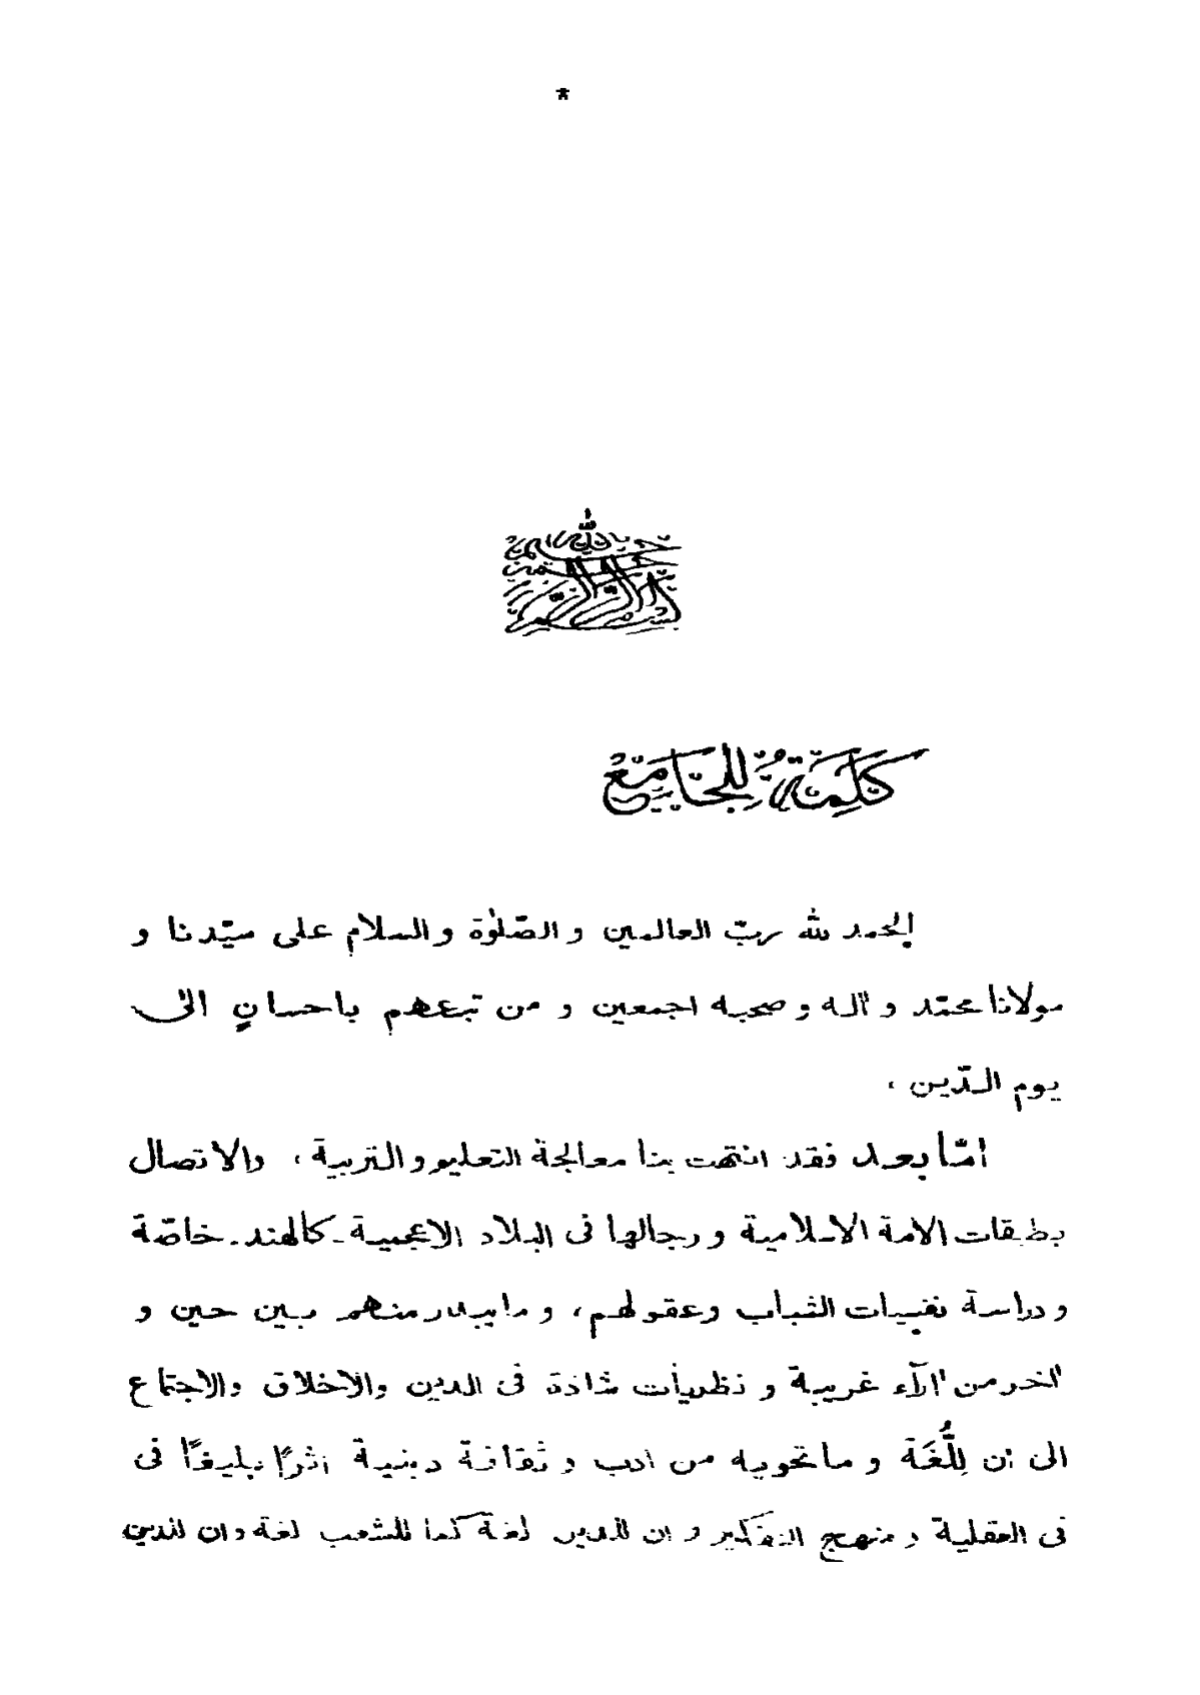 *
بسم الله الرحمن الرحيم
كَلِمَةٌ لِلجَامِعُ
الحمد لله ربّ العالمين و الصّلوٰة والسلام على سيّدنا و
مولانا محمّد و آله و صحبه اجمعين و من تبعهم باحسانٍ الىٰ
يوم الدّين ،
امّا بعد فقد انتهت بنا معالجة التعليم و التربية ، والاتصال
بطبقات الامة الاسلامية و رجالها فى البلاد الاعجمية ـ كالهند ـ خاصّة
و دراسة نفسيات الشباب وعقولهم ، و ما يبدر منهم بين حين و
آخر من آرآء غريبة و نظريات شاذة فى الدين والاخلاق والاجتماع
الى ان لِلُّغَة و ما تحويه من ادب و ثقافة دينية اثرًا بليغًا فى
فى العقلية و منهج التفكير و ان للدين لغة كما للشعب لغة و ان للدين